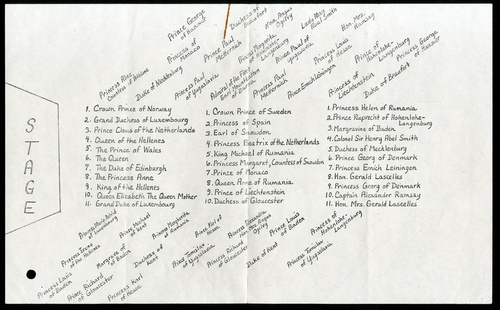 Prince George of Hanover
Duchess of Beaufort
Hon. Angus Ogilvy
Lady May Abel Smith
Hon. Mrs. Ramsay
Princess Alex
Duke of Mecklenburg
Princess of Monaco
Princess Paul of Yugoslavia
Prince Paul Metternich
Admiral of the Fleet Earl Mountbatten of Burma
Prince Margrita Hohenlohe-Langenburg
Princess Paul Metternich
Prince Paul of Yugoslavia
Prince Emich Leiningen
Princess Louis of Hesse
Princess of Liechtenstein
Prince of Hohenlohe-Langenburg
Duke of Beaufort
Princess George of Hanover
STAGE
1. Crown Prince of Norway
2. Grand Duchess of Luxembourg
3. Prince Claus of the Netherlands
4. Queen of the Hellenes
5. The Prince of Wales
6. The Queen
7. The Duke of Edinburgh
8. The Princess Anne
9. King of the Hellenes
10. Queen Elizabeth The Queen Mother
11. Grand Duke of Luxembourg
1. Crown Prince of Sweden
2. Princess of Spain
3. Earl of Snowdon
4. Princess Beatrix of the Netherlands
5. King Michael of Rumania
6. Princess Margaret, Countess of Snowdon
7. Prince of Monaco
8. Queen Anne of Rumania
9. Prince of Liechtenstein
10. Duchess of Gloucester
1. Princess Helen of Rumania
2. Prince Ruprecht of Hohenlohe-Langenburg
3. Margravine of Baden
4. Colonel Sir Henry Abel Smith
5. Duchess of Mecklenburg
6. Prince Georg of Denmark
7. Princess Emich Leiningen
8. Hon. Gerald Lascelles
9. Princess Georg of Denmark
10. Captain Alexander Ramsay
11. Hon. Mrs. Gerald Lascelles
Princess Marie Astrid of Luxembourg
Prince Michael of Kent
Princess Margarita of Rumania
Prince Karl of Hesse
Princess Alexandra, Hon. Mrs. Angus Ogilvy
Prince Louis of Baden
Princess of Hohenlohe-Langenburg
Princess Irene of the Hellenes
Margrave of Baden
Duchess of Kent
Prince Tomislav of Yugoslavia
Prince Richard of Gloucester
Duke of Kent
Princess Tomislav of Yugoslavia
Princess Louis of Baden
Prince Richard of Gloucester
Princess Karl of Hesse